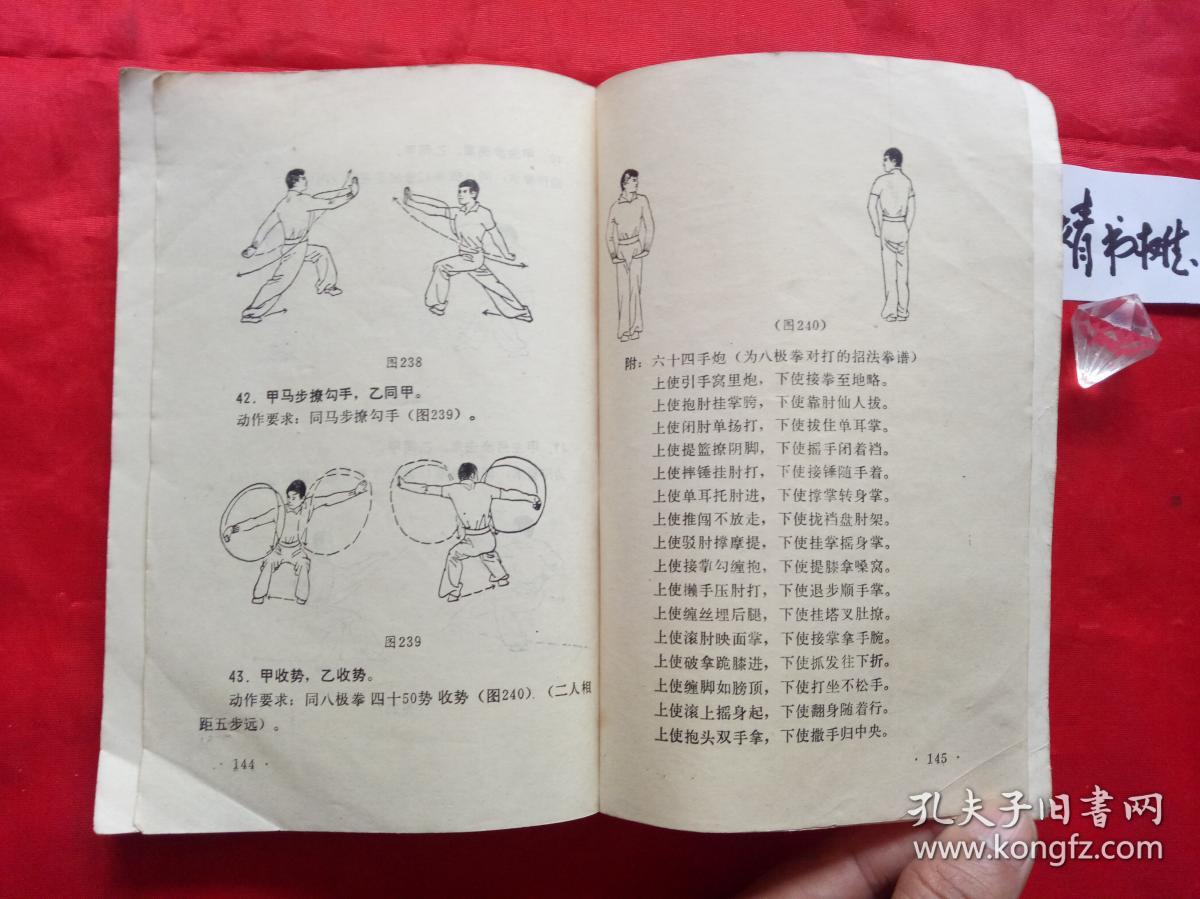 图238
42．甲马步撩勾手，乙同甲。
动作要求：同马步撩勾手（图239）。
图239
43．甲收势，乙收势。
动作要求：同八极拳四十50势收势（图240）．（二人相
距五步远）。
·144·
（图240）
附：六十四手炮（为八极拳对打的招法拳谱）
上使引手窝里炮，下使接拳至地略。
上使抱肘挂掌胯，下使靠肘仙人拔。
上使闭肘单扬打，下使拔住单耳掌。
上使提篮撩阴脚，下使摇手闭着裆。
上使摔锤挂肘打，下使接锤随手着。
上使单耳托肘进，下使撑掌转身掌。
上使推闯不放走，下使拢裆盘肘架。
上使驳肘撑摩提，下使挂掌摇身掌。
上使接掌勾缠抱，下使提膝拿嗓窝。
上使懒手压肘打，下使退步顺手掌。
上使缠丝埋后腿，下使挂塔叉肚撩。
上使滚肘映面掌，下使接掌拿手腕。
上使破拿跪膝进，下使抓发往下折。
上使缠脚如膀顶，下使打坐不松手。
上使滚上摇身起，下使翻身随着行。
上使抱头双手拿，下使撒手归中央。
·145·
书
孔夫子旧书网
www.kongfz.com